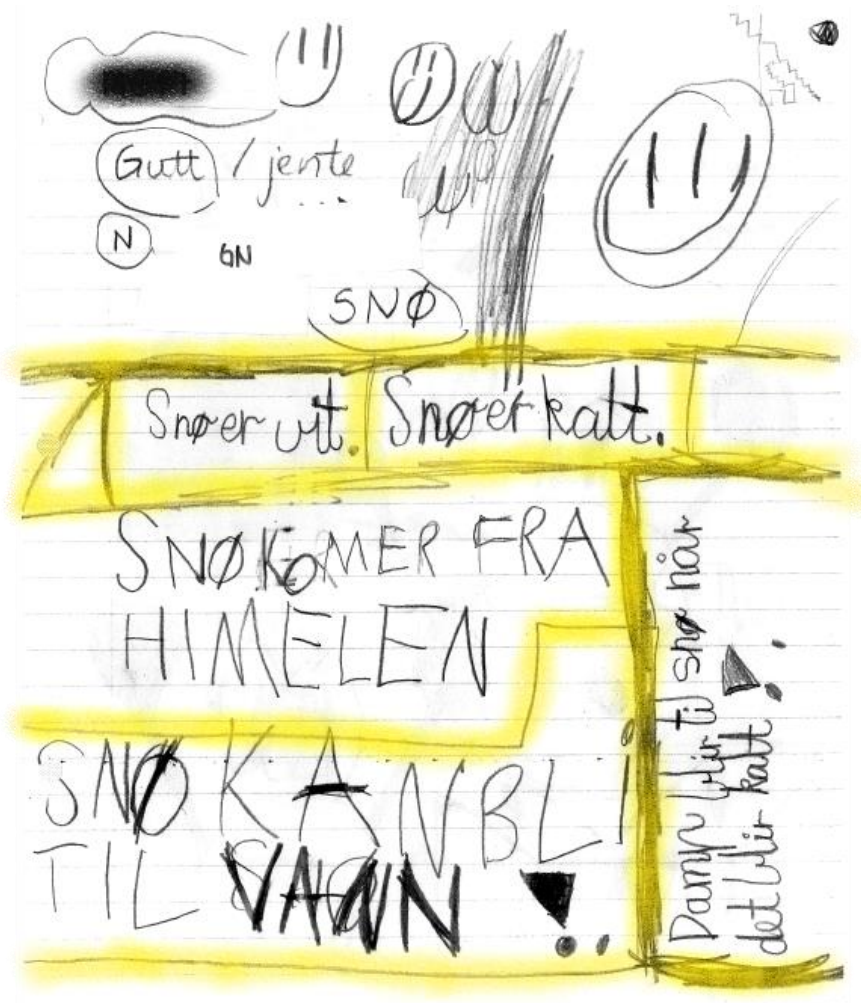 Gutt / jente
N GN
SNØ
Snø er vit. Snø er kalt.
SNØ KOMER FRA
HIMELEN
SNØ KAN BLI
TIL VANN !.
Damp blir til snø når
det blir kalt !.